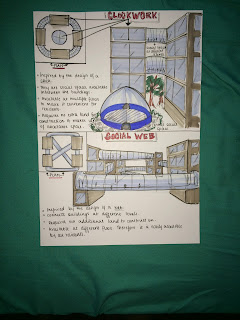 CLOCKWORK
Plan
- Inspired by the design of a
clock.
- They are social spaces available
inbetween the buildings.
- Available at multiple floors
to make it convenient for
residents.
- Requires no extra land for
construction & makes
of vertical space.
SOCIAL WEB
Plan
- Inspired by the design of a web.
- connects buildings at different levels.
- Requires no additional land to construct on.
- Available at different floors therefore is a easily accessible
by all residents.